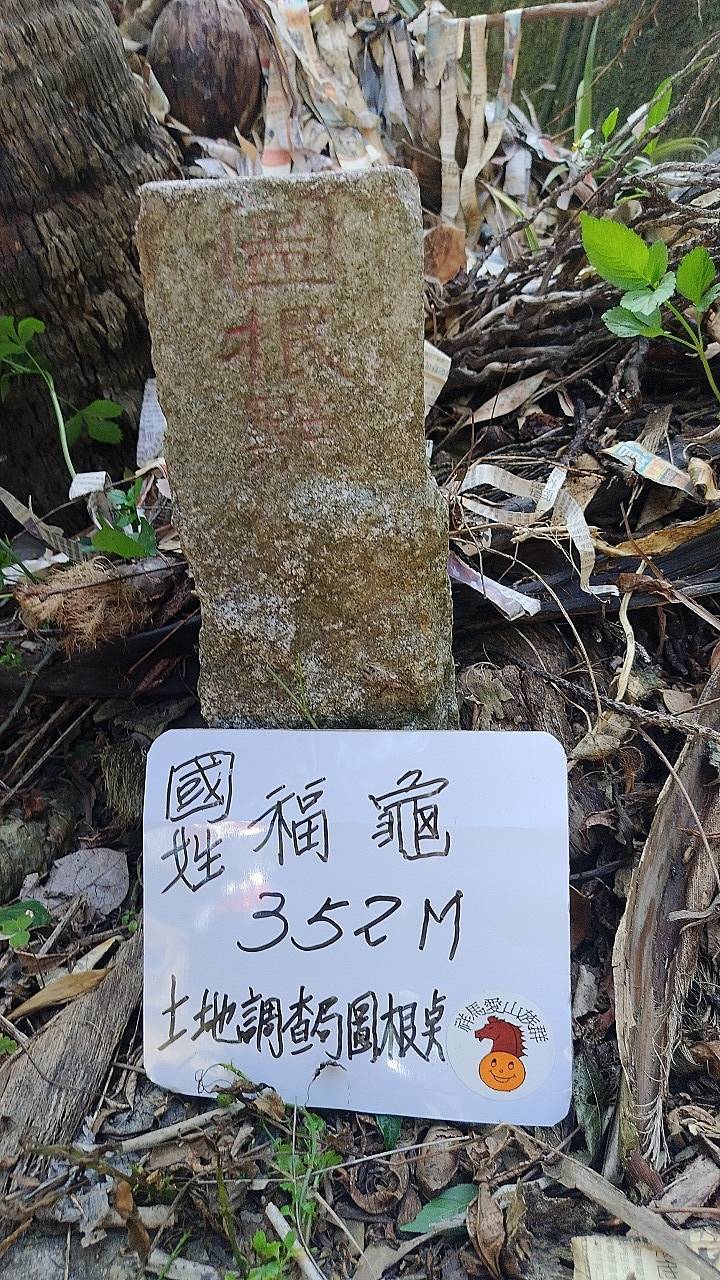 圖根點
國姓 福龜
352M
土地調查局圖根點
祥馬愛山族群